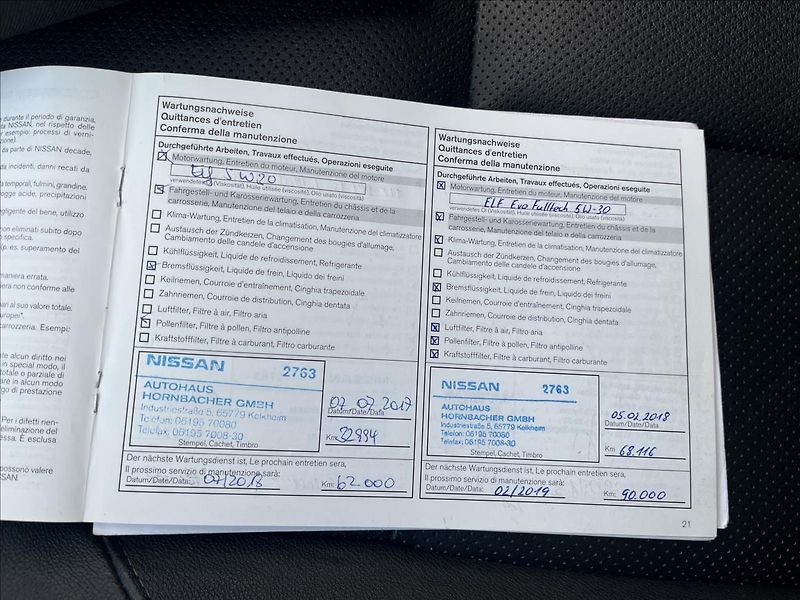 durante il periodo di garanzia,
da NISSAN, nel rispetto delle
esempio: processi di verni-
zione)
da parte di NISSAN decade,
da incidenti, danni recati da
temporali, fulmini, grandine,
ogge acide, precipitazioni
negligente del bene, utilizzo
non eliminati subito dopo
specifica.
(p. es. superamento del
maniera errata.
era non conforme alle
ari al suo valore totale.
uropei".
carrozzeria. Esempi:
te alcun diritto nei
in special modo, il
totale o parziale di
are in alcun modo
go di prestazione
Per i difetti rien-
eliminazione del
essa. È esclusa
possono valere
SSAN.
Wartungsnachweise
Quittances d'entretien
Conferma della manutenzione
Durchgeführte Arbeiten, Travaux effectués, Operazioni eseguite
Motorwartung, Entretien du moteur, Manutenzione del motore
Elf 5W30
verwendetes Öl (Viskosität), Huile utilisée (viscosité), Olio usato (viscosità)
Fahrgestell- und Karosseriewartung, Entretien du châssis et de la
carrosserie, Manutenzione del telaio e della carrozzeria
Klima-Wartung, Entretien de la climatisation, Manutenzione del climatizzatore
Austausch der Zündkerzen, Changement des bougies d'allumage,
Cambiamento delle candele d'accensione
Kühlflüssigkeit, Liquide de refroidissement, Refrigerante
Bremsflüssigkeit, Liquide de frein, Liquido dei freini
Keilriemen, Courroie d'entraînement, Cinghia trapezoidale
Zahnriemen, Courroie de distribution, Cinghia dentata
Luftfilter, Filtre à air, Filtro aria
Pollenfilter, Filtre à pollen, Filtro antipolline
Kraftstofffilter, Filtre à carburant, Filtro carburante
NISSAN 2763
AUTOHAUS
HORNBACHER GMBH
Industriestraße 5, 65779 Kelkheim
Telefon: 06195 70080
Telefax: 06195 7008-30
Stempel, Cachet, Timbro
07.07.2017
Datum/Date/Data
Km: 32994
Der nächste Wartungsdienst ist, Le prochain entretien sera,
Il prossimo servizio di manutenzione sarà:
Datum/Date/Data: 07/2018 Km: 62.000
Wartungsnachweise
Quittances d'entretien
Conferma della manutenzione
Durchgeführte Arbeiten, Travaux effectués, Operazioni eseguite
Motorwartung, Entretien du moteur, Manutenzione del motore
ELF Evo Fulltech 5W-30
verwendetes Öl (Viskosität), Huile utilisée (viscosité), Olio usato (viscosità)
Fahrgestell- und Karosseriewartung, Entretien du châssis et de la
carrosserie, Manutenzione del telaio e della carrozzeria
Klima-Wartung, Entretien de la climatisation, Manutenzione del climatizzatore
Austausch der Zündkerzen, Changement des bougies d'allumage,
Cambiamento delle candele d'accensione
Kühlflüssigkeit, Liquide de refroidissement, Refrigerante
Bremsflüssigkeit, Liquide de frein, Liquido dei freini
Keilriemen, Courroie d'entraînement, Cinghia trapezoidale
Zahnriemen, Courroie de distribution, Cinghia dentata
Luftfilter, Filtre à air, Filtro aria
Pollenfilter, Filtre à pollen, Filtro antipolline
Kraftstofffilter, Filtre à carburant, Filtro carburante
NISSAN 2763
AUTOHAUS
HORNBACHER GMBH
Industriestraße 5, 65779 Kelkheim
Telefon: 06195 70080
Telefax: 06195 7008-30
Stempel, Cachet, Timbro
05.02.2018
Datum/Date/Data:
Km: 68.116
Der nächste Wartungsdienst ist, Le prochain entretien sera,
Il prossimo servizio di manutenzione sarà:
Datum/Date/Data: 02/2019 Km: 90.000
21